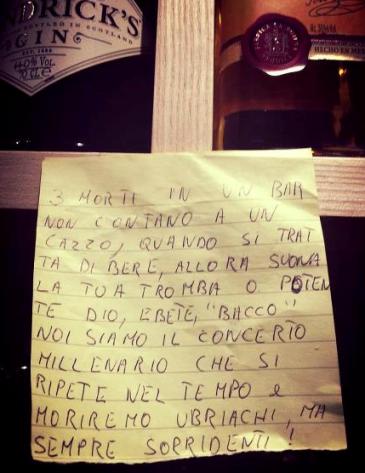 NDRICK'S
BOTTLED IN SCOTLAND
GIN
EST. 1886
40% VOL.
70 CLE
HECHO EN MEX
3 MORTI IN UN BAR
NON CONTANO A UN
CAZZO, QUANDO SI TRAT
TA DI BERE, ALLORA SUONA
LA TUA TROMBA O POTEN
TE DIO, EBETE, "BACCO"
NOI SIAMO IL CONCERTO
MILLENARIO CHE SI
RIPETE NEL TEMPO e
MORIREMO UBRIACHI, MA
SEMPRE SORRIDENTI!